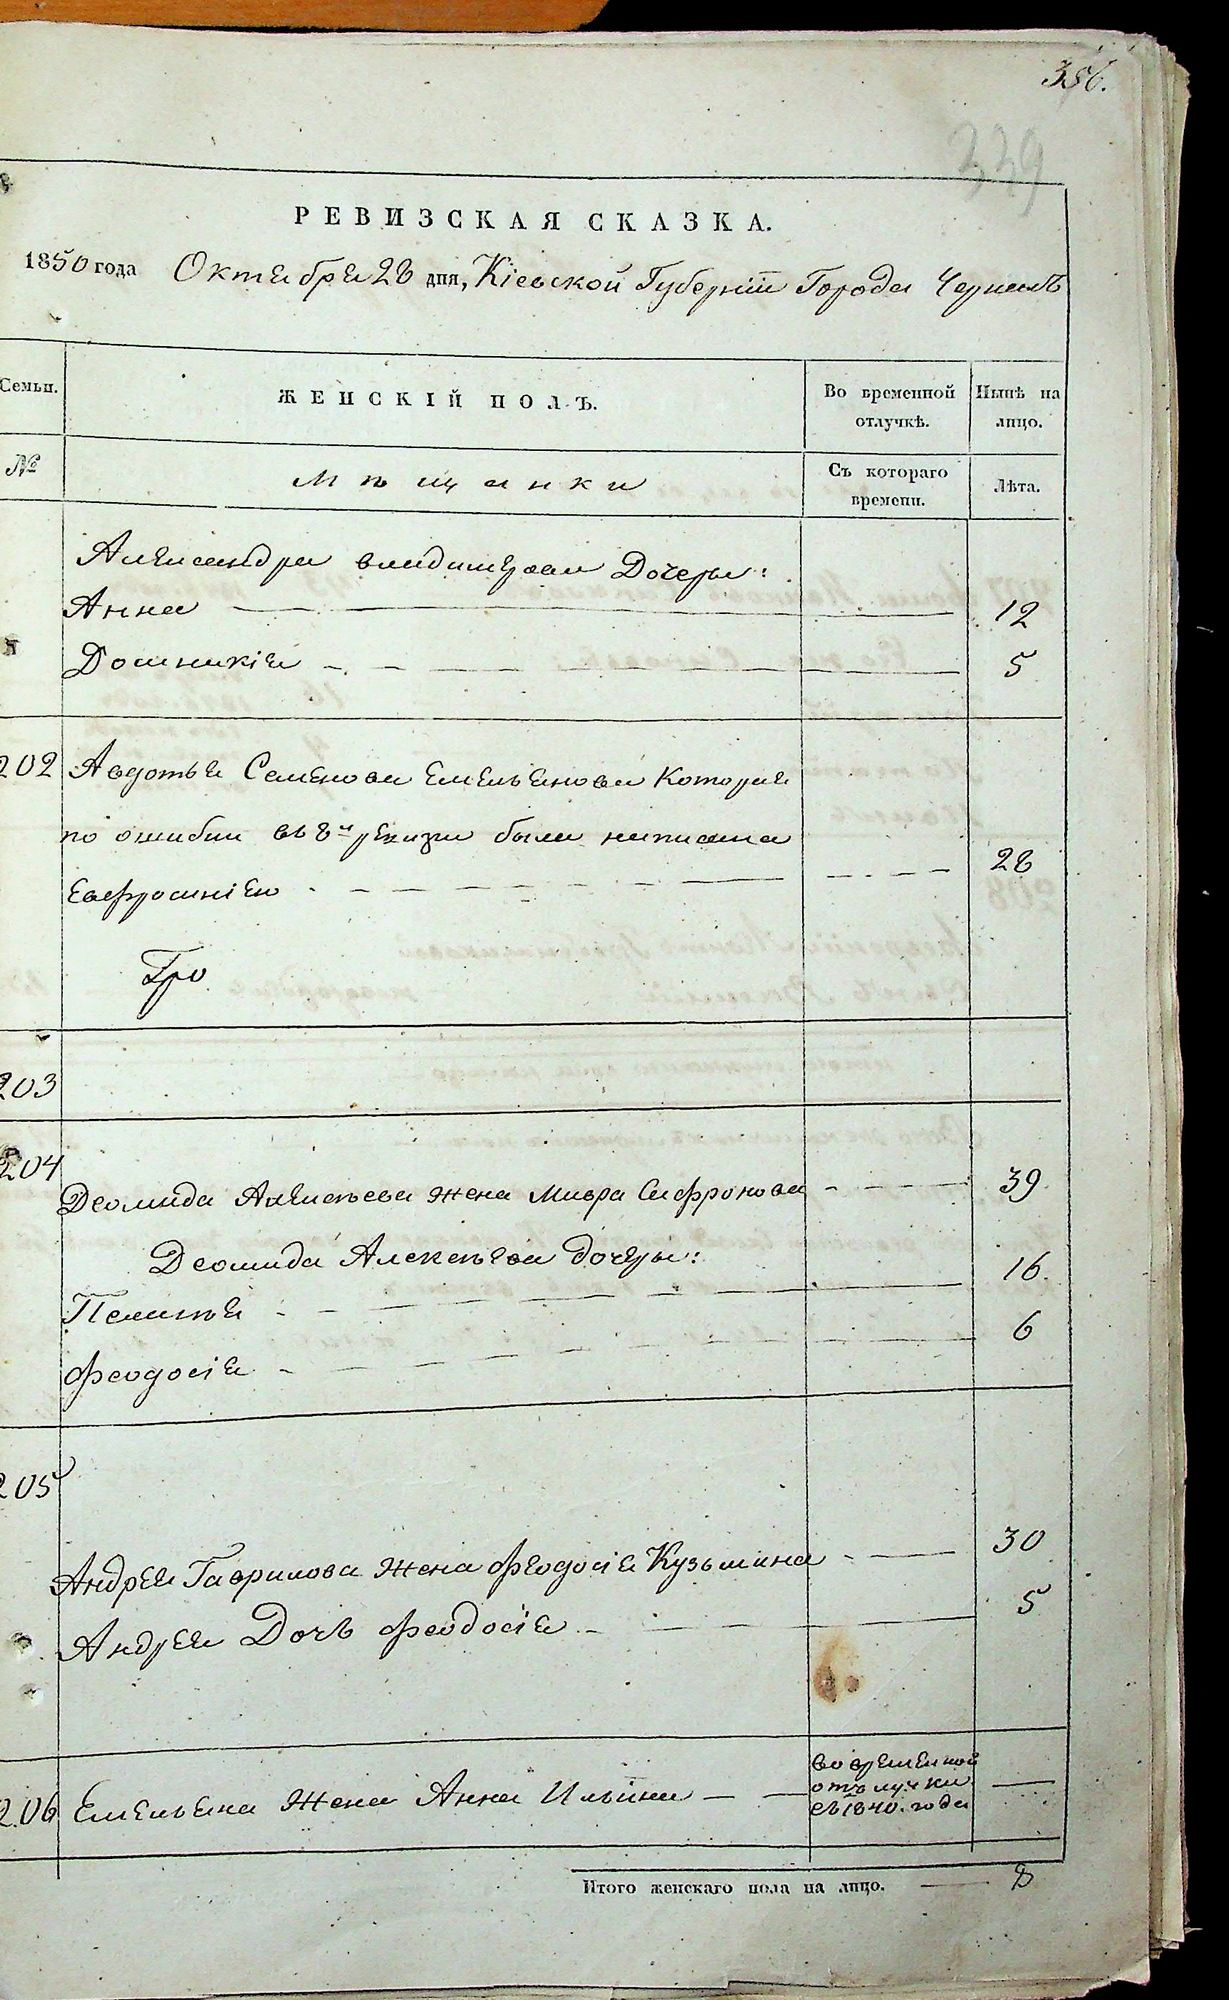 356.
339
РЕВИЗСКАЯ СКАЗКА.
1850 года Октября 28 дня, Кіевской Губерніи Города Черкасъ
Семьи. ЖЕНСКІЙ ПОЛЪ. Во временной отлучкѣ. Нынѣ на лицо.
№ Мѣщанки Съ котораго времени. Лѣта.
Александра Владимерова Дочеры:
Анна 12
Домникія 5
202 Авдотья Семенова Емельянова Которая
по ошибки въ 8й ревизи была написана
Евфросиніею 28
203
204
Деомида Алексѣева жена Мавра Сафронова 39
Деомида Алексѣева дочеры:
Пелагѣя 16.
Феодосія 6
205
Андрея Гаврилова жена Феодосія Кузьмина 30
Андрея Дочь Феодосія 5
206 Емельяна Жена Анна Ильина
во временной
отълучки
съ 1840. года
Итого женскаго пола на лицо. 8